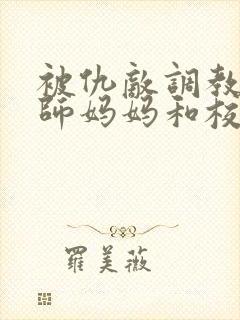 被仇敵調教
師媽媽和校
羅美薇